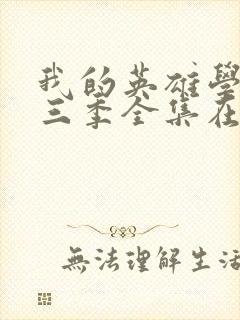 我的英雄學
三季全集在
無法理解生活